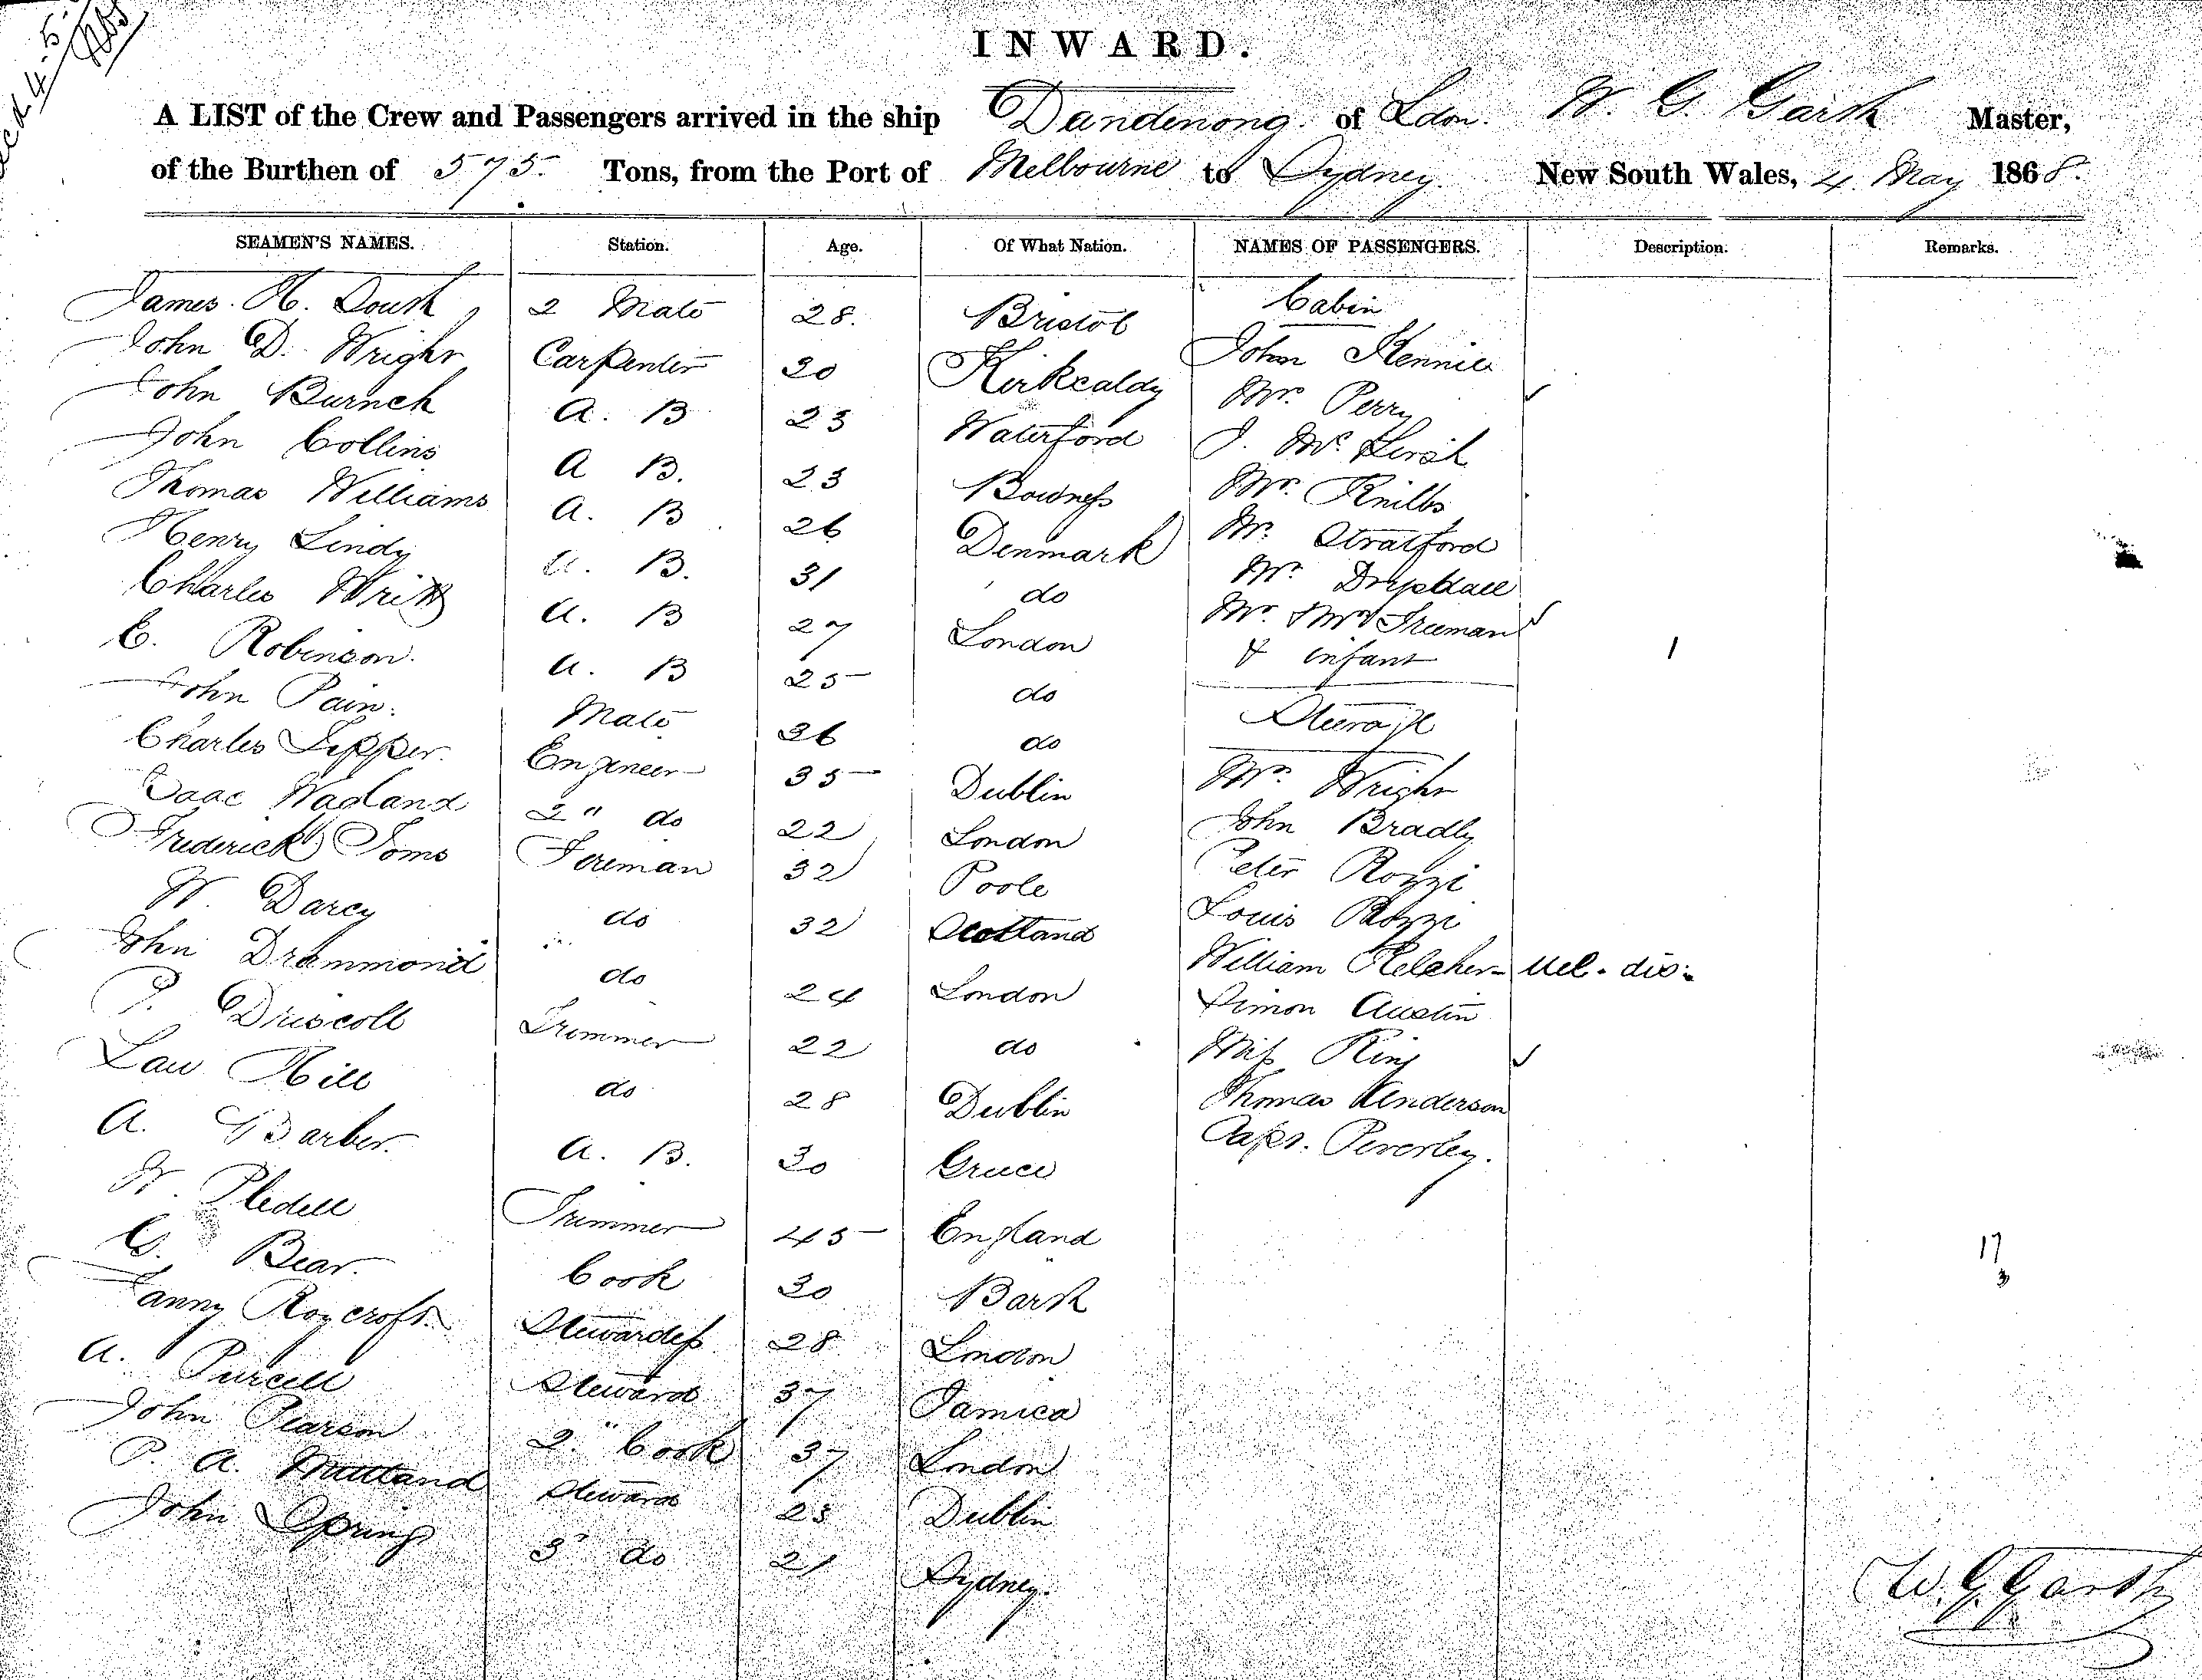 INWARD.
A LIST of the Crew and Passengers arrived in the ship Dandenong of Ldon. W. G. Garth Master,
of the Burthen of 575 Tons, from the Port of Melbourne to Sydney New South Wales, 4 May 1868.
SEAMEN'S NAMES. Station. Age. Of What Nation. NAMES OF PASSENGERS. Description. Remarks.
Cabin
James H. 2 Mate 28. Bristol John
John D. Wright Carpenter 30 Kirkcaldy Mr. Perry
John A. B 23 Waterford J.
John Collins A B. 23 Bowness Mr. Knilbs
Thomas Williams A. B 26 Denmark Mr. Stratford
Henry Lindy A. B. 31 do Mr.
Charles A. B 27 London Mr. & Mrs Freeman
& infant 1
E. Robinson. A. B 25 do
Steerage
John Pain. Mate 36 do
Charles Engineer 35 Dublin Mr. Wright
Isaac Wadland 2" do 22 London John Bradly
Frederick Toms Foreman 32 Poole Peter Rozzi
W. Darcy do 32 Scotland Louis Rozzi
John Drummond do 24 London William Kelcher
P. Driscoll Trimmer 22 do Simon Austin
Law Hill do 28 Dublin Miss King
A. Barber. A. B. 30 Greece Thomas Anderson
W. Pledell Trimmer 45 England Capt. Peverley.
G. Bear. Cook 30
17
3
Fanny Roycroft Stewardess 28 London
A. Purcell Steward 37 Jamica
John Pearson 2" Cook 37 London
P. A. Maitland Steward 23 Dublin
John Spring 3" do 21 Sydney.
W. G. Garth